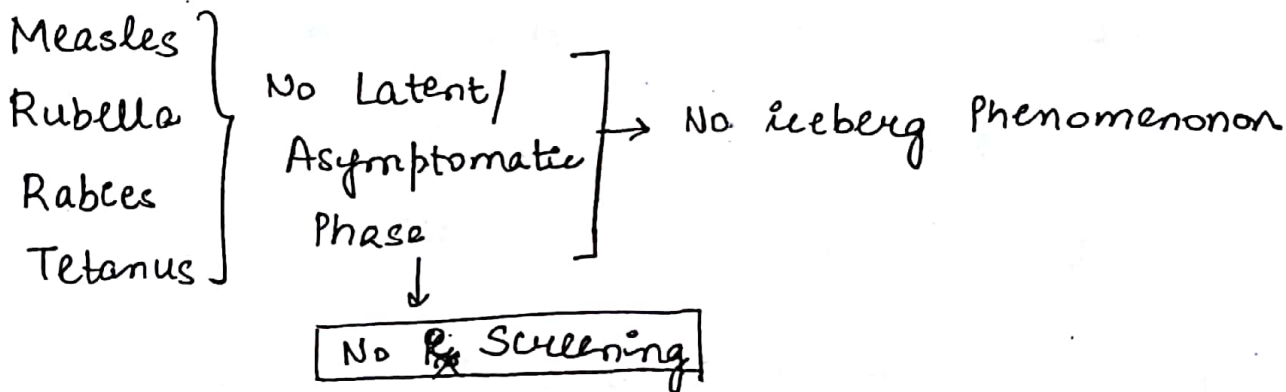 Measles
Rubella
Rabies
Tetanus
No Latent/
Asymptomatic
Phase
→ No iceberg Phenomenonon
↓
No Screening